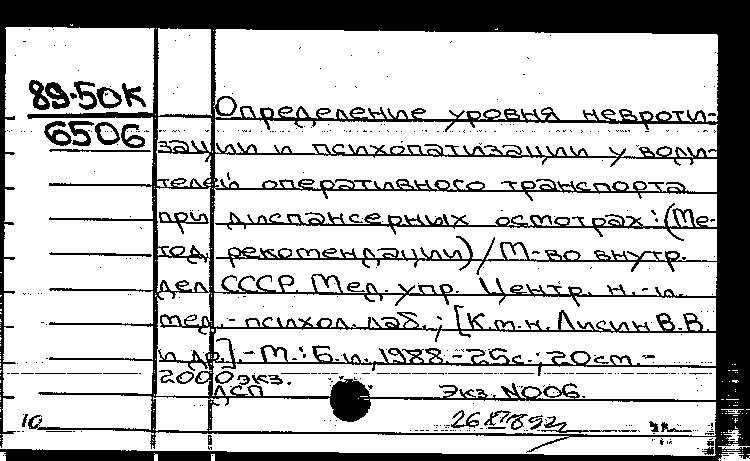 89-50К
6506
Определение уровня невроти-
зации и психопатизации у води-
телей оперативного транспорта
при диспансерных осмотрах: (Ме-
тод. рекомендации) / М-во внутр.
дел СССР. Мед. упр. Центр. н.-и.
мед.-психол. лаб.; [К.м.н. Лисин В.В.
и др.].-М.: Б.и., 1988.-25с.; 20см.-
2000экз.
ДСП Экз. N006.
10